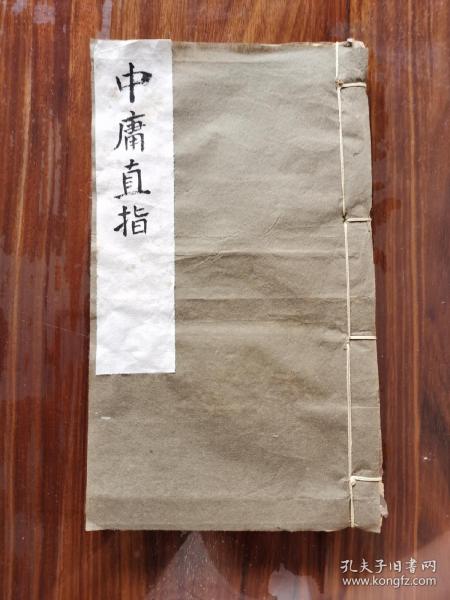 中庸直指
孔夫子旧书网
www.kongfz.com